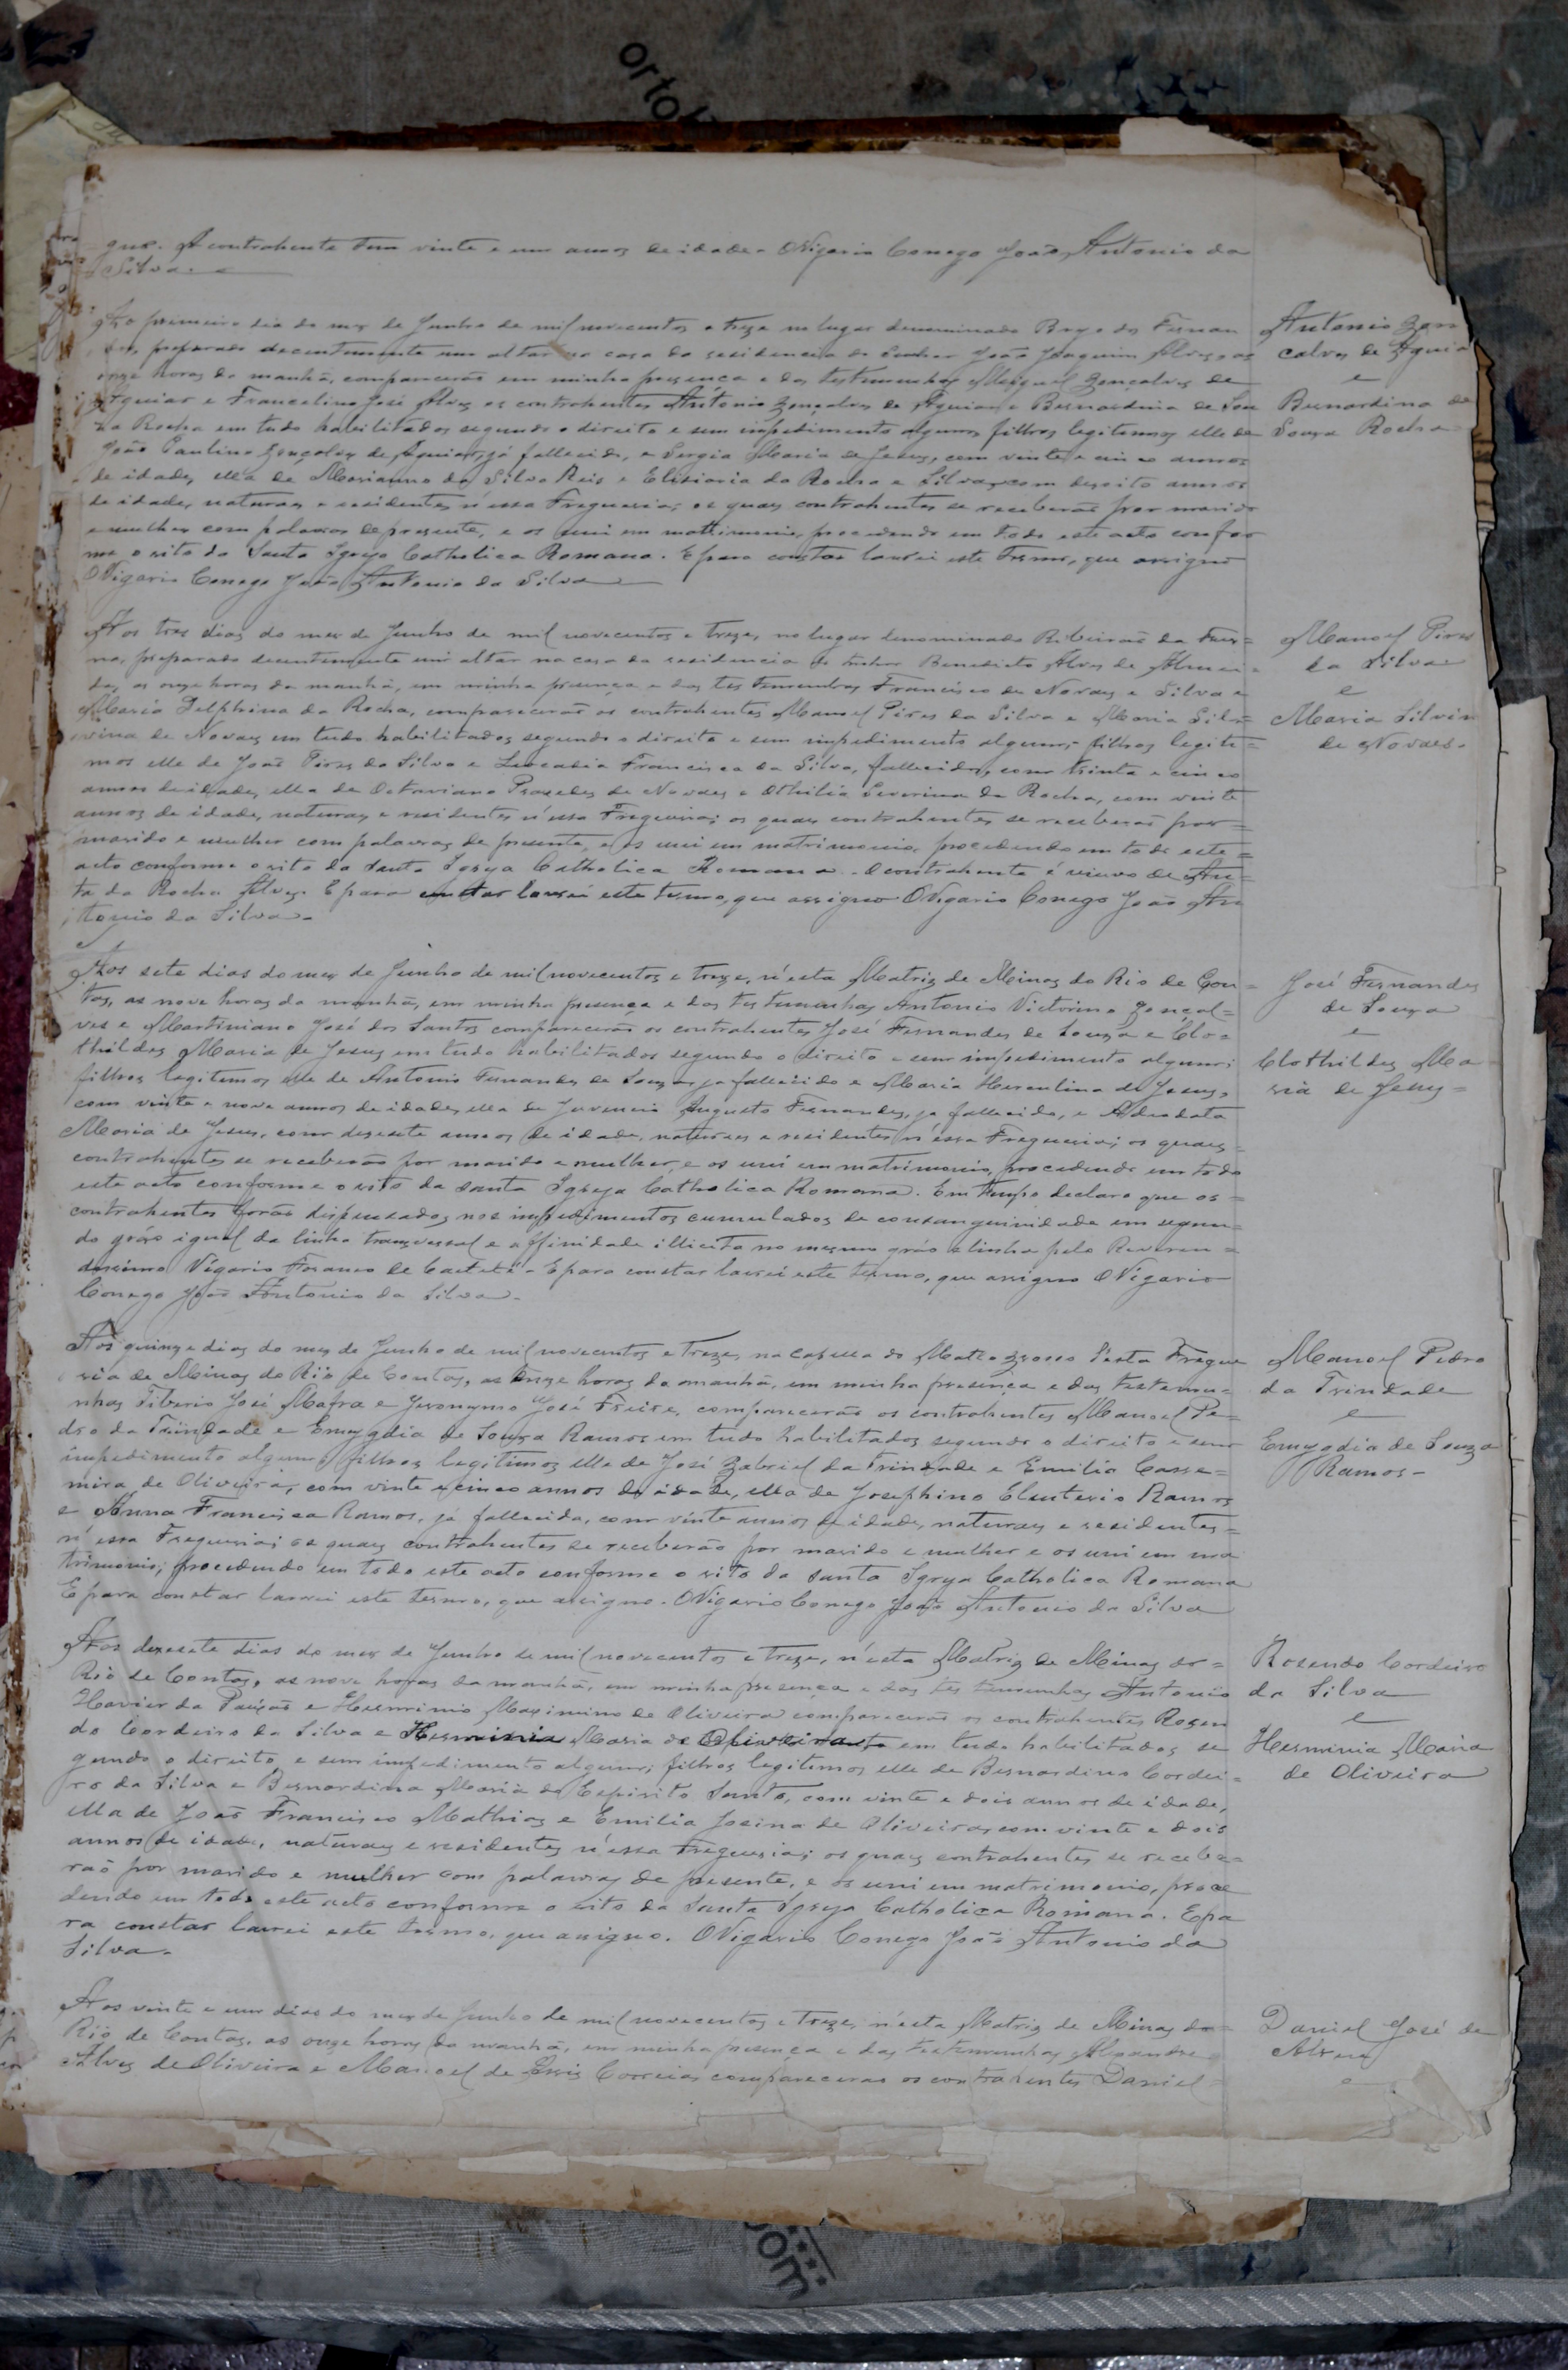 que. A contrahente tem vinte e um annos de idade. O Vigario Conego João Antonio da
Silva.
Ao primeiro dia do mez de Junho de mil novecentos e treze no lugar denominado Brejo dos Fernan
des, preparado decentemente um altar na casa da residencia do Senhor João Joaquim Alves, as
onze horas da manhã, comparecerão em minha presença e das testemunhas Miguel Gonçalves de
Aguiar e Francelino José Alves os contrahentes Antonio Gonçalves de Aguiar e Bernardina de Sou
za Rocha em tudo habilitados segundo o direito e sem impedimento algum, filhos legitimos elle de
João Paulino Gonçalves de Aguiar, já fallecido, e Sergia Maria de Jesus, com vinte e cinco annos
de idade, ella de Marianno da Silva Reis e Elisiaria da Rocha e Silva, com desoito annos
de idade, naturaes e residentes n'essa Freguesia; os quaes contrahentes se receberão por marido
e mulher com palavras de presente, e os uni em mattrimonio, procedendo em todo este acto confor
me o rito da Santa Igreja Catholica Romana. E para constar lavrei este termo, que assigno
O Vigario Conego João Antonio da Silva
Antonio Gon
calves de Aguia
e
Bernardina de
Souza Rocha
Aos tres dias do mez de Junho de mil novecentos e treze, no lugar denominado Ribeirão da Fur=
na, preparado decentemente um altar na casa da residencia do Senhor Benedicto Alves de Almei=
da, as onze horas da manhã, em minha presença e das testemunhas Francisco de Novaes e Silva e
Maria Delphina da Rocha, comparecerão os contrahentes Manoel Pires da Silva e Maria Sil=
vina de Novaes em tudo habilitados segundo o direito e sem impedimento algum; filhos legiti=
mos elle de João Pires da Silva e Leocadia Francisca da Silva, fallecidos, com trinta e cinco
annos de idade, ella de Octaviano Praxedes de Novaes e Othilia Severina da Rocha, com vinte
annos de idade, naturaes e residentes n'essa Freguesia; os quaes contrahentes se receberão por=
marido e mulher com palavras de presente, e os uni em matrimonio, procedendo em todo este=
acto conforme o rito da Santa Igreja Catholica Romana. O contrahente é viuvo de An=
ta da Rocha Alves. E para constar lavrei este termo, que assigno O Vigario Conego João An
tonio da Silva.
Manoel Pires
da Silva
e
Maria Silvin
de Novaes.
Aos sete dias do mez de Junho de mil novecentos e treze, n'esta Matriz de Minas do Rio de Con=
tas, as nove horas da manhã, em minha presença e das testemunhas Antonio Victorino Gonçal=
ves e Martiniano José dos Santos comparecerão os contrahentes José Fernandes de Souza e Clo=
thildes Maria de Jesus em tudo habilitados segundo o direito e sem impedimento algum;
filhos legitimos elle de Antonio Fernandes de Souza, ja fallecido e Maria Herculina de Jesus,
com vinte e nove annos de idade, ella de Juvencio Augusto Fernandes, ja fallecido, e Adeodata
Maria de Jesus, com desesete annos de idade, naturaes e residentes n'essa Freguesia; os quaes=
contrahentes se receberão por marido e mulher, e os uni em matrimonio, procedendo em todo
este acto conforme o rito da Santa Igreja Catholica Romana. Em tempo declaro que os=
contrahentes forão dispensados nos impedimentos cumulados de consanguinidade em segun=
do gráo igual da linha transversal e affinidade illicita no mesmo gráo e linha pelo Reveren=
dissimo Vigario Foraneo de Caeteté. E para constar lavrei este termo, que assigno O Vigario
Conego João Antonio da Silva.
José Fernandes
de Souza
e
Clothildes Ma
ria de Jesus=
Aos quinze dias do mez de Junho de mil novecentos e treze, na capella do Matto Grosso d'esta Fregue
sia de Minas do Rio de Contas, as onze horas da manhã, em minha presença e das testemu=
nhas Tiberio José Mafra e Jeronymo José Freire, comparecerão os contrahentes Manoel Pe=
dro da Trindade e Emygdia de Souza Ramos em tudo habilitados segundo o direito e sem
impedimento algum; filhos legitimos elle de José Gabriel da Trindade e Emilia Casse=
mira de Oliveira, com vinte e cinco annos de idade, ella de Josephino Eleuterio Ramos
e Anna Francisca Ramos, já fallecida, com vinte annos de idade, naturaes e residentes=
n'essa Freguesia; os quaes contrahentes se receberão por marido e mulher e os uni em ma
trimonio; procedendo em todo este acto conforme o rito da Santa Igreja Catholica Romana
E para constar lavrei este termo, que assigno. O Vigario Conego João Antonio da Silva
Manoel Pedro
da Trindade
e
Emygdia de Souza
Ramos-
Aos desesete dias do mez de Junho de mil novecentos e treze, n'esta Matriz de Minas do=
Rio de Contas, as nove horas da manhã, em minha presença e das testemunhas Antonio
Xavier da Paixão e Herminio Maximino de Oliveira comparecerão os contrahentes Rosen
do Cordeiro da Silva e Herminia Maria de Oliveira em tudo habilitados se
gundo o direito e sem impedimento algum; filhos legitimos elle de Bernardino Cordei=
ro da Silva e Bernardina Maria do Espirito Santo, com vinte e dois annos de idade,
ella de João Francisco Mathias e Emilia Josina de Oliveira, com vinte e dois
annos de idade, naturaes e residentes n'essa Freguesia; os quaes contrahentes se recebe=
rão por marido e mulher com palavras de presente, e os uni em matrimonio, proce
dendo em todo este acto conforme o rito da Santa Igreja Catholica Romana. E pa
ra constar lavrei este termo, que assigno. O Vigario Conego João Antonio da
Silva.
Rosendo Cordeiro
da Silva
e
Herminia Maria
de Oliveira
Aos vinte e um dias do mez de Junho de mil novecentos e treze, n'esta Matriz de Minas do=
Rio de Contas, as onze horas da manhã, em minha presença e das testemunhas Alexandre
Alves de Oliveira e Manoel de Correia, comparecerão os contrahentes Daniel=
Daniel José de
e